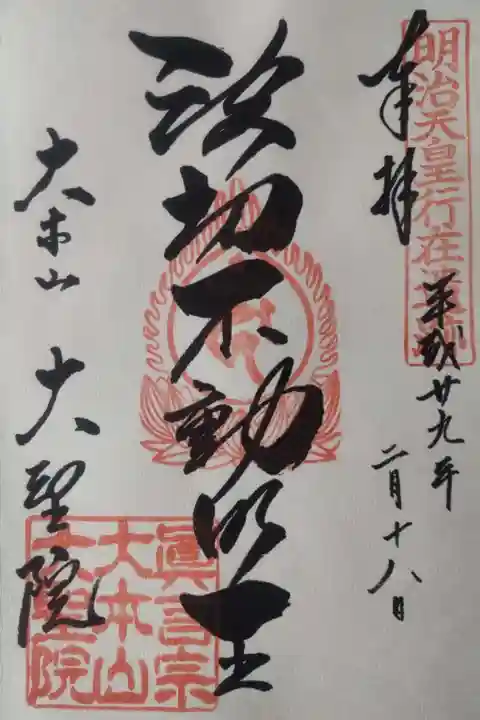 明治天皇行在所遺跡
奉拝
平成廿九年
二月十八日
波切不動明王
大本山 大聖院
眞言宗
大本山
大聖院